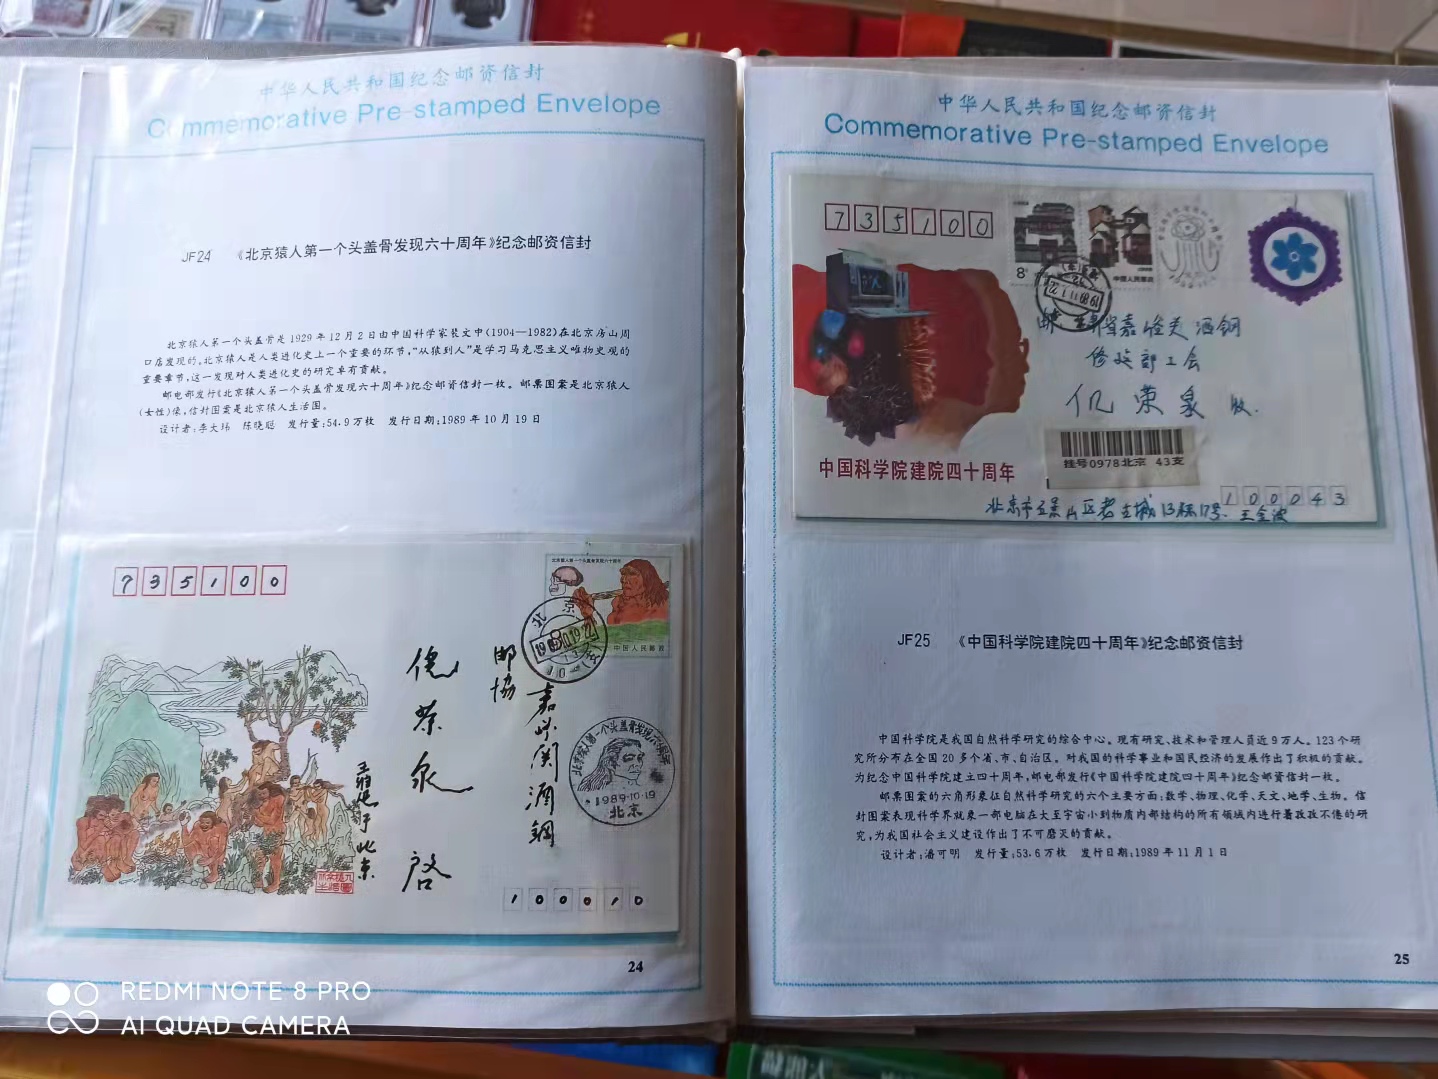 中华人民共和国纪念邮资信封
Commemorative Pre-stamped Envelope
JF24 《北京猿人第一个头盖骨发现六十周年》纪念邮资信封
北京猿人第一个头盖骨是1929年12月2日由中国科学家裴文中(1904—1982)在北京房山周
口店发现的。北京猿人是人类进化史上一个重要的环节,“从猿到人”是学习马克思主义唯物史观的
重要章节,这一发现对人类进化史的研究卓有贡献。
邮电部发行《北京猿人第一个头盖骨发现六十周年》纪念邮资信封一枚。邮票图案是北京猿人
(女性)像,信封图案是北京猿人生活图。
设计者:李大玮 陈晓聪 发行量:54.9万枚 发行日期:1989年10月19日
735100
北京猿人第一个头盖骨发现六十周年
中国人民邮政
北京
邮协
嘉峪关酒鋼
荣泉
启
北京猿人第一个头盖骨发现六十周年
1989·10·19
北京
于北京
100010
24
中华人民共和国纪念邮资信封
Commemorative Pre-stamped Envelope
735100
8分
中国人民邮政
嘉峪关酒钢
修建部工会
荣泉 收
中国科学院建院四十周年
挂号0978北京 43支
100043
北京市石景山区老古城13栋17号
JF25 《中国科学院建院四十周年》纪念邮资信封
中国科学院是我国自然科学研究的综合中心。现有研究、技术和管理人员近9万人。123个研
究所分布在全国20多个省、市、自治区。对我国的科学事业和国民经济的发展作出了积极的贡献。
为纪念中国科学院建立四十周年,邮电部发行《中国科学院建院四十周年》纪念邮资信封一枚。
邮票图案的六角形象征自然科学研究的六个主要方面:数学、物理、化学、天文、地学、生物。信
封图案表现科学界就象一部电脑在大至宇宙小到物质内部结构的所有领域内进行着孜孜不倦的研
究,为我国社会主义建设作出了不可磨灭的贡献。
设计者:潘可明 发行量:53.6万枚 发行日期:1989年11月1日
25
REDMI NOTE 8 PRO
AI QUAD CAMERA